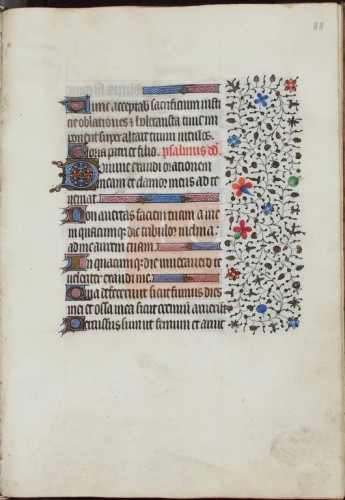 88
Tunc acceptab sacrificium iusti
cie oblationes & holocausta tunc im
ponent super altare tuum vitulos.
Gloria patri et filio. psalmus dd.
Domine exaudi orationem
meam et clamor meus ad te
veniat.
Non avertas faciem tuam a me
in quacumq; die tribulor inclina
ad me aurem tuam.
In quacumq; die invocavero te
velociter exaudi me.
Quia defecerunt sicut fumus dies
mei et ossa mea sicut cremium aruerunt
Percussus sum ut fenum et aruit